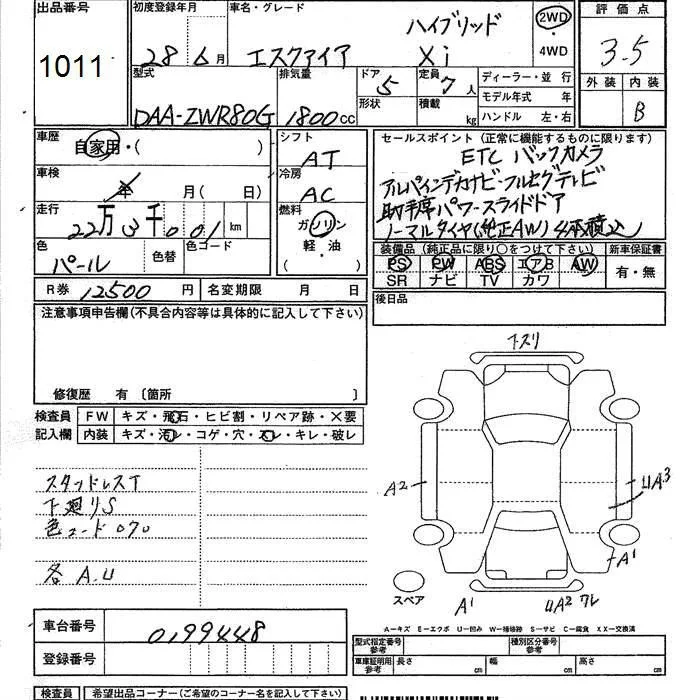 出品番号 1011
初度登録年月 28 6月
車名・グレード エスクァイア ハイブリッド Xi
2WD・4WD
評価点 3.5
外装 内装 B
型式 DAA-ZWR80G
排気量 1800cc
ドア 5 形状
定員 7人 積載 kg
ディーラー・並行
モデル年式 年
ハンドル 左・右
車歴 自家用・( )
車検 年 月(日)
走行 22万3千001 km
色 パール 色替 色コード
シフト AT
冷房 AC
燃料 ガソリン 軽・油 ( )
セールスポイント(正常に機能するものに限ります)
ETC バックカメラ
アルパインデカナビ・フルセグテレビ
助手席パワースライドドア
ノーマルタイヤ(純正AW)4本積込
装備品(純正品に限り○をつけて下さい)
PS PW ABS エアB AW
SR ナビ TV カワ
新車保証書 有・無
R券 12500円
名変期限 月 日
後日品
注意事項申告欄(不具合内容等は具体的に記入して下さい)
修復歴 有〔箇所 〕
検査員記入欄
FW キズ・飛石・ヒビ割・リペア跡・×要
内装 キズ・汚レ・コゲ・穴・スレ・キレ・破レ
スタッドレスT
下廻りS
色コード070
各A.U
下スリ
A2
UA3
A1
スペア
A1
UA2 ワレ
A-キズ E-エクボ U-凹み W-補修跡 S-サビ C-腐食 XX-交換済
車台番号 0199448
登録番号
型式指定番号 参考
種別区分番号 参考
車庫証明用 参考 長さ cm 幅 cm 高さ cm
検査員
希望出品コーナー(ご希望のコーナー名を記入下さい)